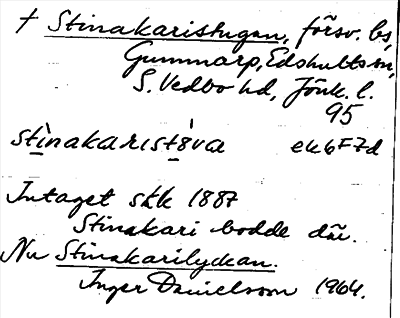 † Stinakaristugan, försv. bs,
Gummarp, Edshults sn,
S. Vedbo hd, Jönk. l.
95
stinakaristȣva ek 6F7d
Intaget skk 1887
Stinakari bodde där.
Nu Stinakarilyckan.
Inger Danielsson 1964.